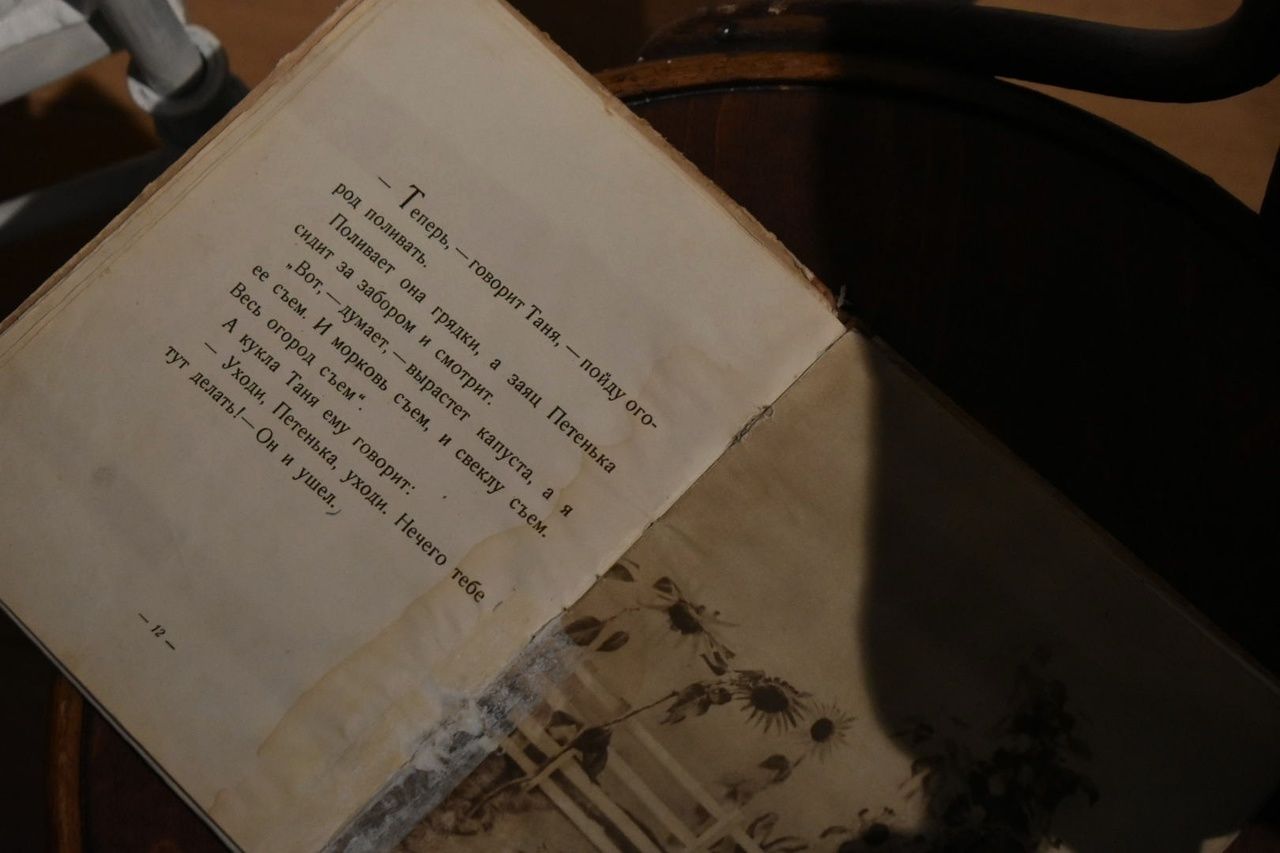 — Теперь, — говорит Таня, — пойду ого-
род поливать.
Поливает она грядки, а заяц Петенька
сидит за забором и смотрит.
„Вот, — думает, — вырастет капуста, а я
ее съем. И морковь съем, и свеклу съем.
Весь огород съем“.
А кукла Таня ему говорит:
— Уходи, Петенька, уходи. Нечего тебе
тут делать! — Он и ушел.
— 12 —